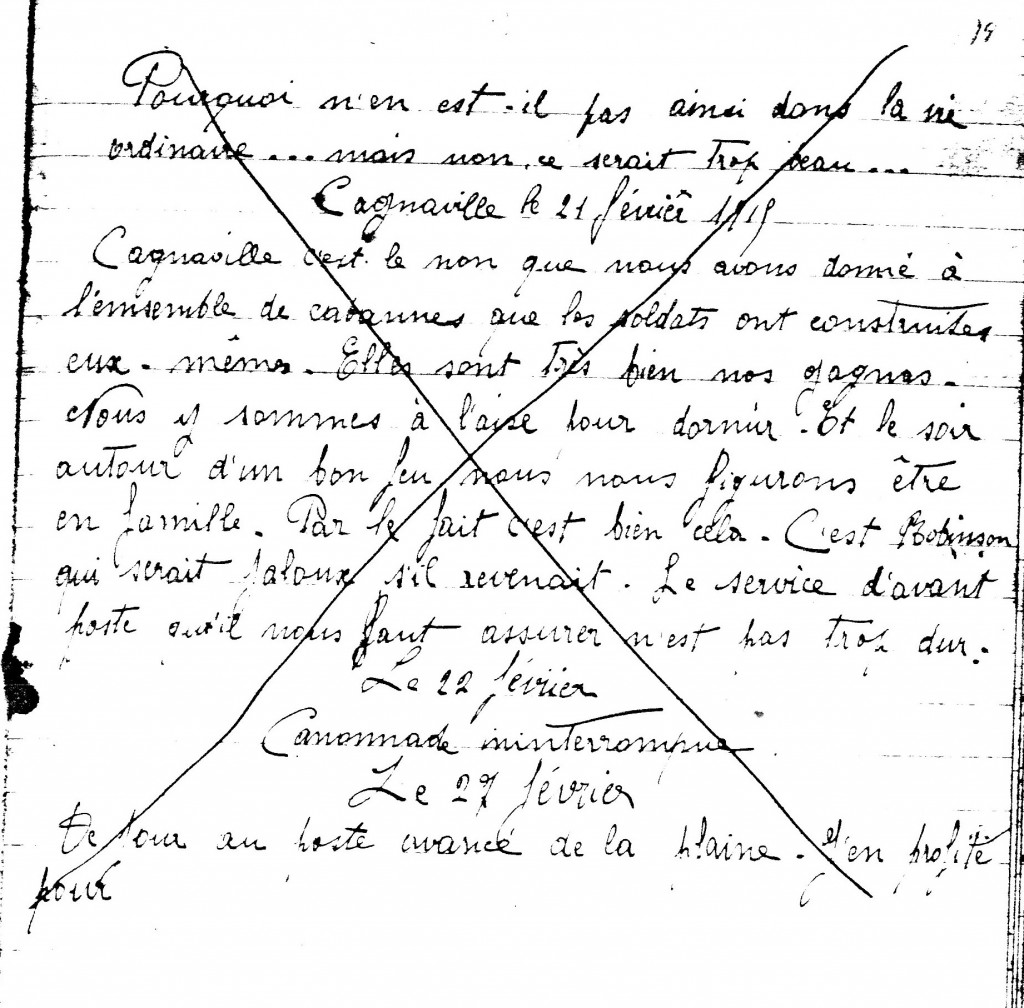 Pourquoi n'en est-il pas ainsi dans la vie
ordinaire ... mais non, ce serait trop beau ...
Cagnaville le 21 février 1915
Cagnaville c'est le non que nous avons donné à
l'emsemble de cabannes que les soldats ont construites
eux-mêmes. Elles sont très bien nos gagnas.
Nous y sommes à l'aise pour dormir. Et le soir
autour d'un bon feu nous nous figurons être
en famille. Par le fait c'est bien cela. C'est Robinson
qui serait jaloux s'il revenait. Le service d'avant
poste qu'il nous faut assurer n'est pas trop dur.
Le 22 février
Canonnade ininterrompue
Le 27 février
De jour au poste avancé de la plaine. J'en profite
pour